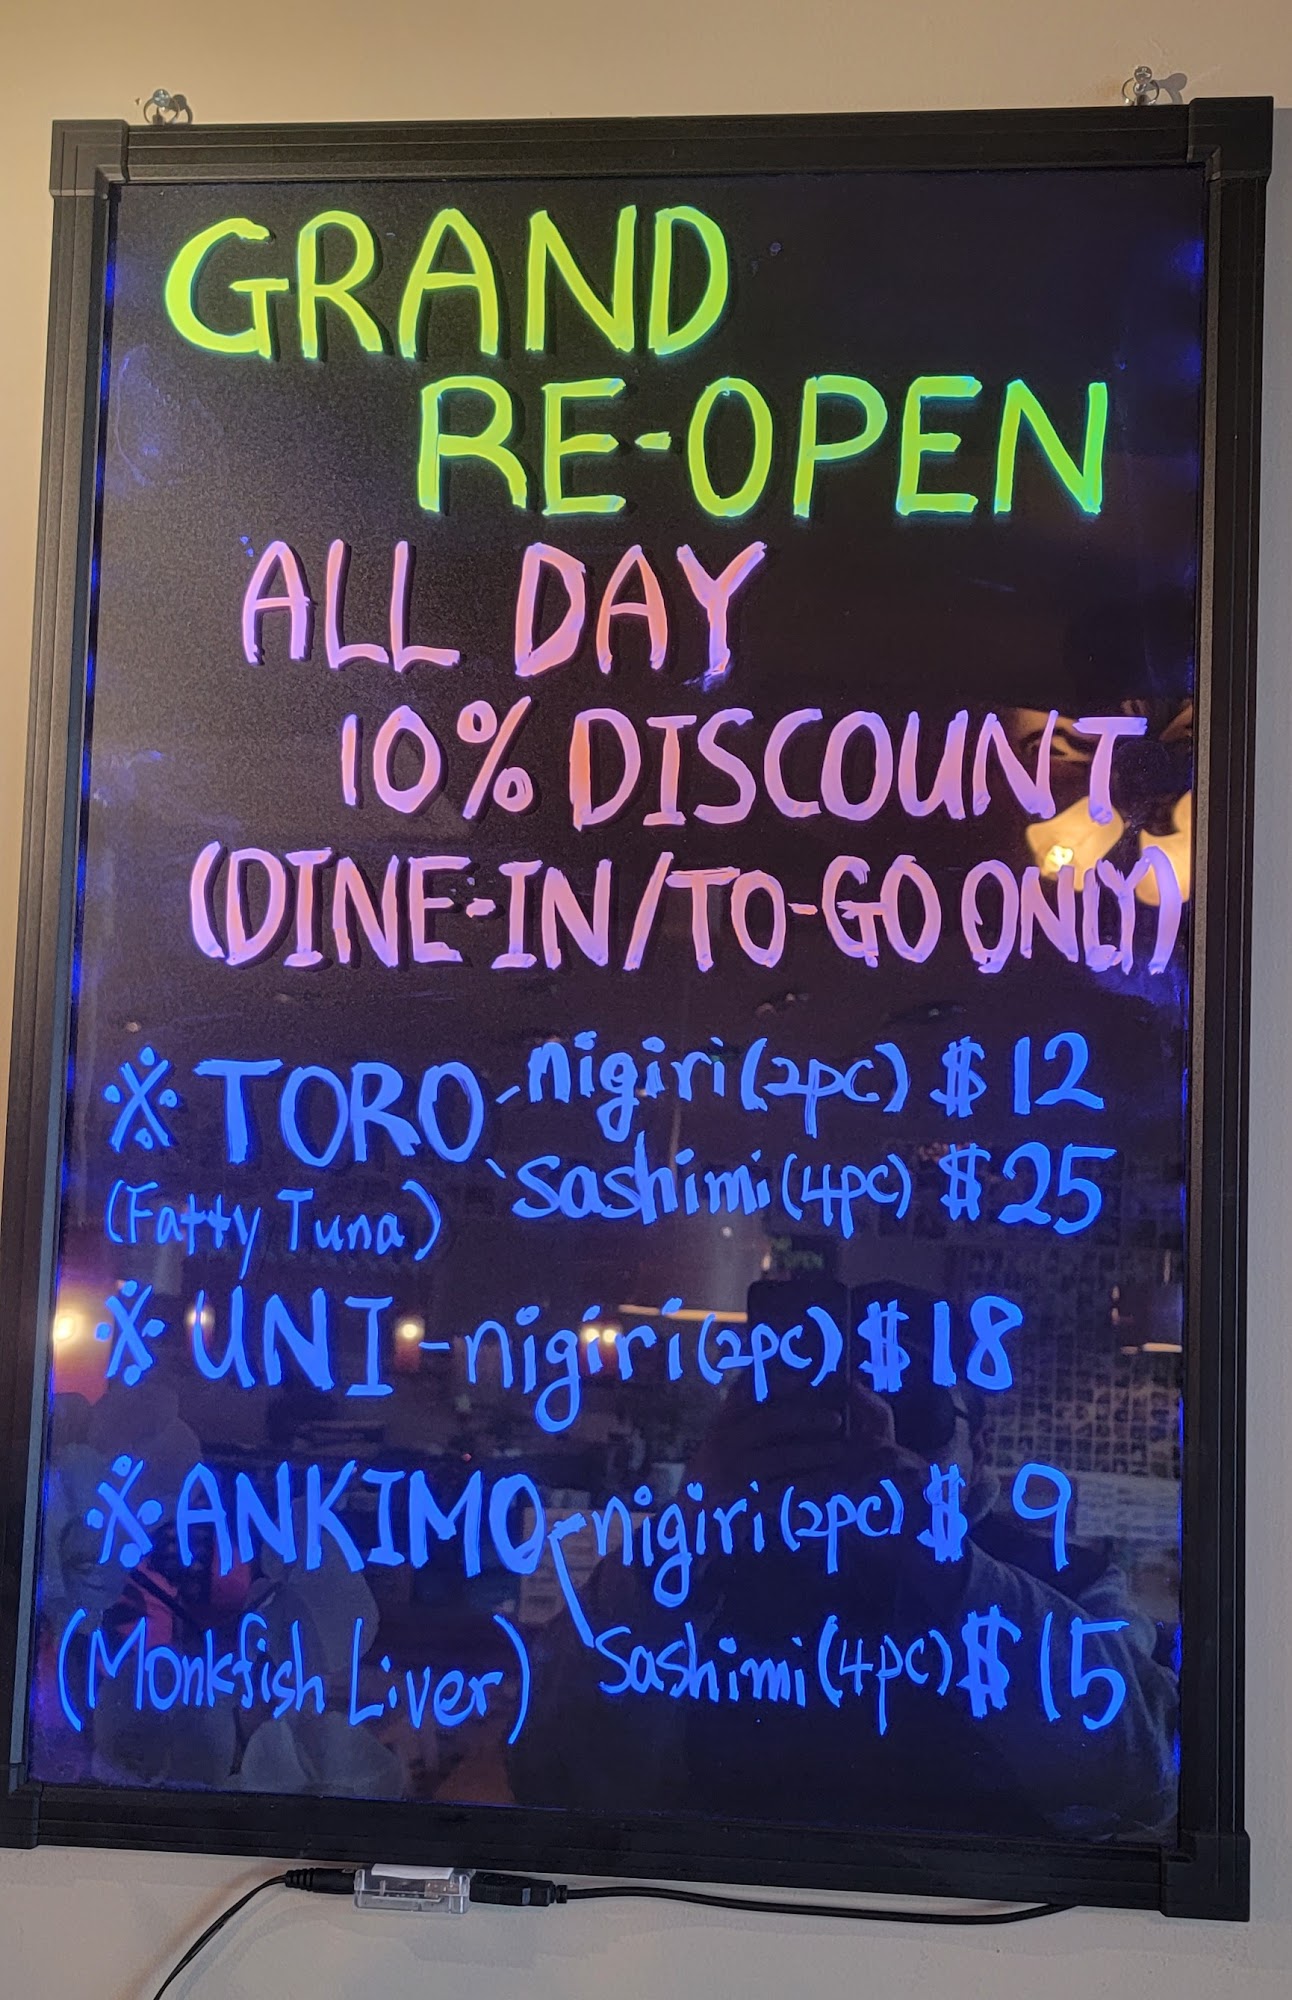 GRAND
RE-OPEN
ALL DAY
10% DISCOUNT
(DINE-IN/TO-GO ONLY)
※ TORO - nigiri (2pc) $12
- Sashimi (4pc) $25
(Fatty Tuna)
※ UNI - nigiri (2pc) $18
※ ANKIMO - nigiri (2pc) $9
Sashimi (4pc) $15
(Monkfish Liver)